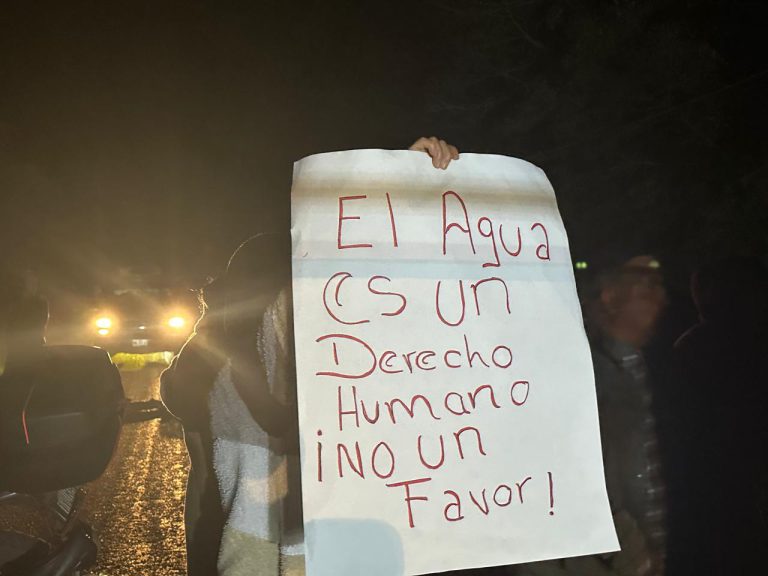 El Agua
es un
Derecho
Humano
¡No un
Favor!